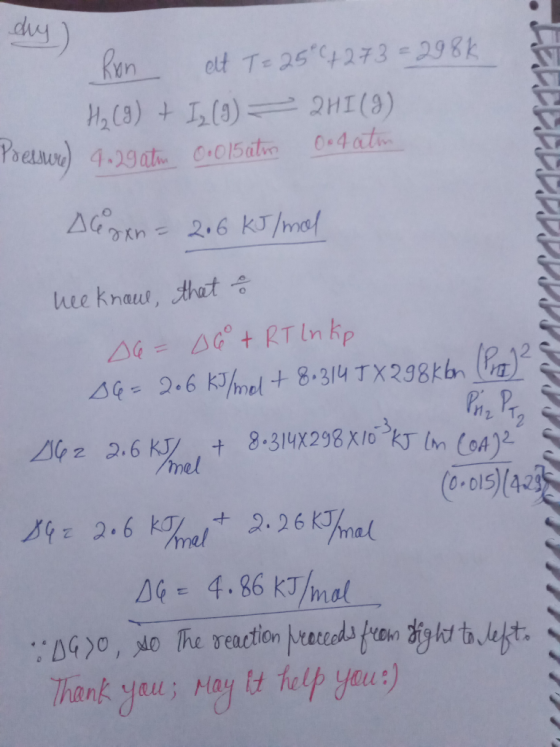 Rxn at T = 25°C + 273 = 298K
H₂(g) + I₂(g) ⇌ 2HI(g)
Pressure) 4.29atm 0.015atm 0.4atm
ΔG°rxn = 2.6 KJ/mol
We know, that ÷
ΔG = ΔG° + RT ln Kp
ΔG = 2.6 KJ/mol + 8.314 J X 298K ln (P_HI)² / P_H₂ P_I₂
ΔG = 2.6 KJ/mol + 8.314X298X10⁻³KJ ln (0.4)² / (0.015)(4.29)
ΔG = 2.6 KJ/mol + 2.26 KJ/mol
ΔG = 4.86 KJ/mol
∵ ΔG>0, so The reaction proceeds from right to left.
Thank you; May it help you:)